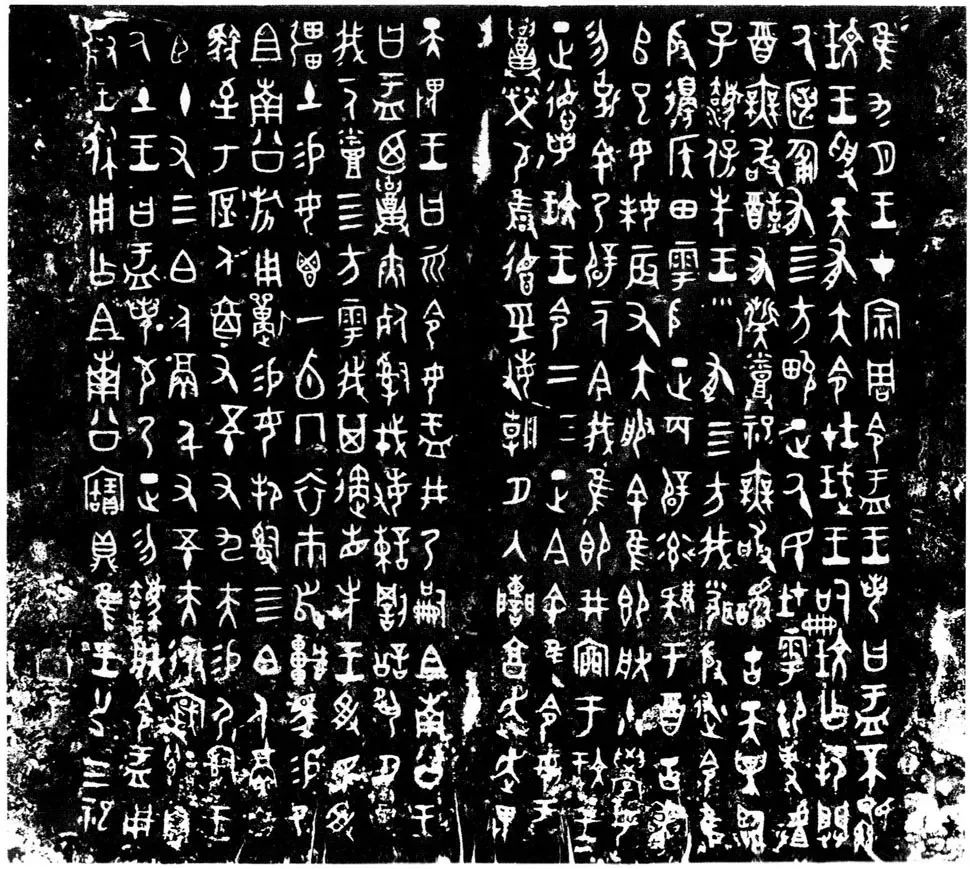 隹九月王才宗周令盂王若曰盂不顯
玟王受天有大令在珷王嗣玟乍邦闢
厥匿匍有四方畯正厥民在雩御事𠭯
酉無敢酖有祡烝祀無敢擾古天異臨
子灋保先王有四方我聞殷述令隹
殷邊侯田雩殷正百辟率肄于酉古喪
師巳女妹辰又大服余隹即朕小學女
勿剋余乃辟一人今我隹即井㐭于玟王
正德若玟王令二三正今余隹令女盂
召榮敬雍德經敏朝夕入諫享奔走畏
天畏王曰而令女盂井乃嗣且南公王
曰盂迺召夾死司戎敏諫罰訟夙夕召
我一人烝四方雩我其遹省先王受民受
疆土易女鬯一卣冂衣巿舄車馬易
乃且南公旂用狩易女邦司四白人鬲
自馭至于庶人六百又五十又九夫易尸司王
臣十又三白人鬲千又五十夫𢓊寏遷自
厥土王曰盂若敬乃正勿灋朕令盂用
對王休用乍且南公寶鼎隹王廿又三祀